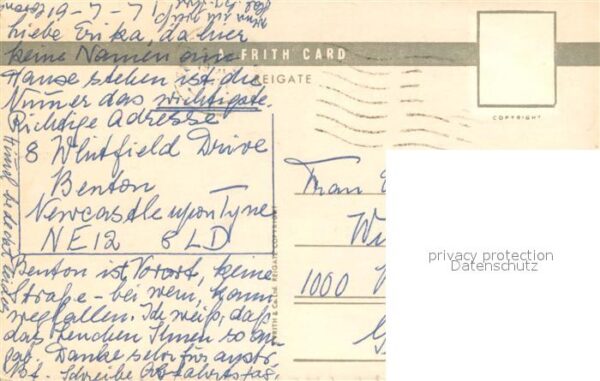 19-7-71
Liebe Erika, da hier
keine Namen am
Hause stehen ist die
Numer das wichtigste.
Richtige Adresse
8 Whitfield Drive
Benton
Newcastle upon Tyne
NE12 8LD
Benton ist Vorort, keine
Straße - bei wem, kann
wegfallen. Ich weiß, daß
das Lenchen Ihnen so
gab. Danke sehr für
Schreibe Abfahrtstag.
A FRITH CARD
REIGATE
COPYRIGHT
FRITH & CO. LTD. REIGATE COPYRIGHT
Frau
1000
privacy protection
Datenschutz